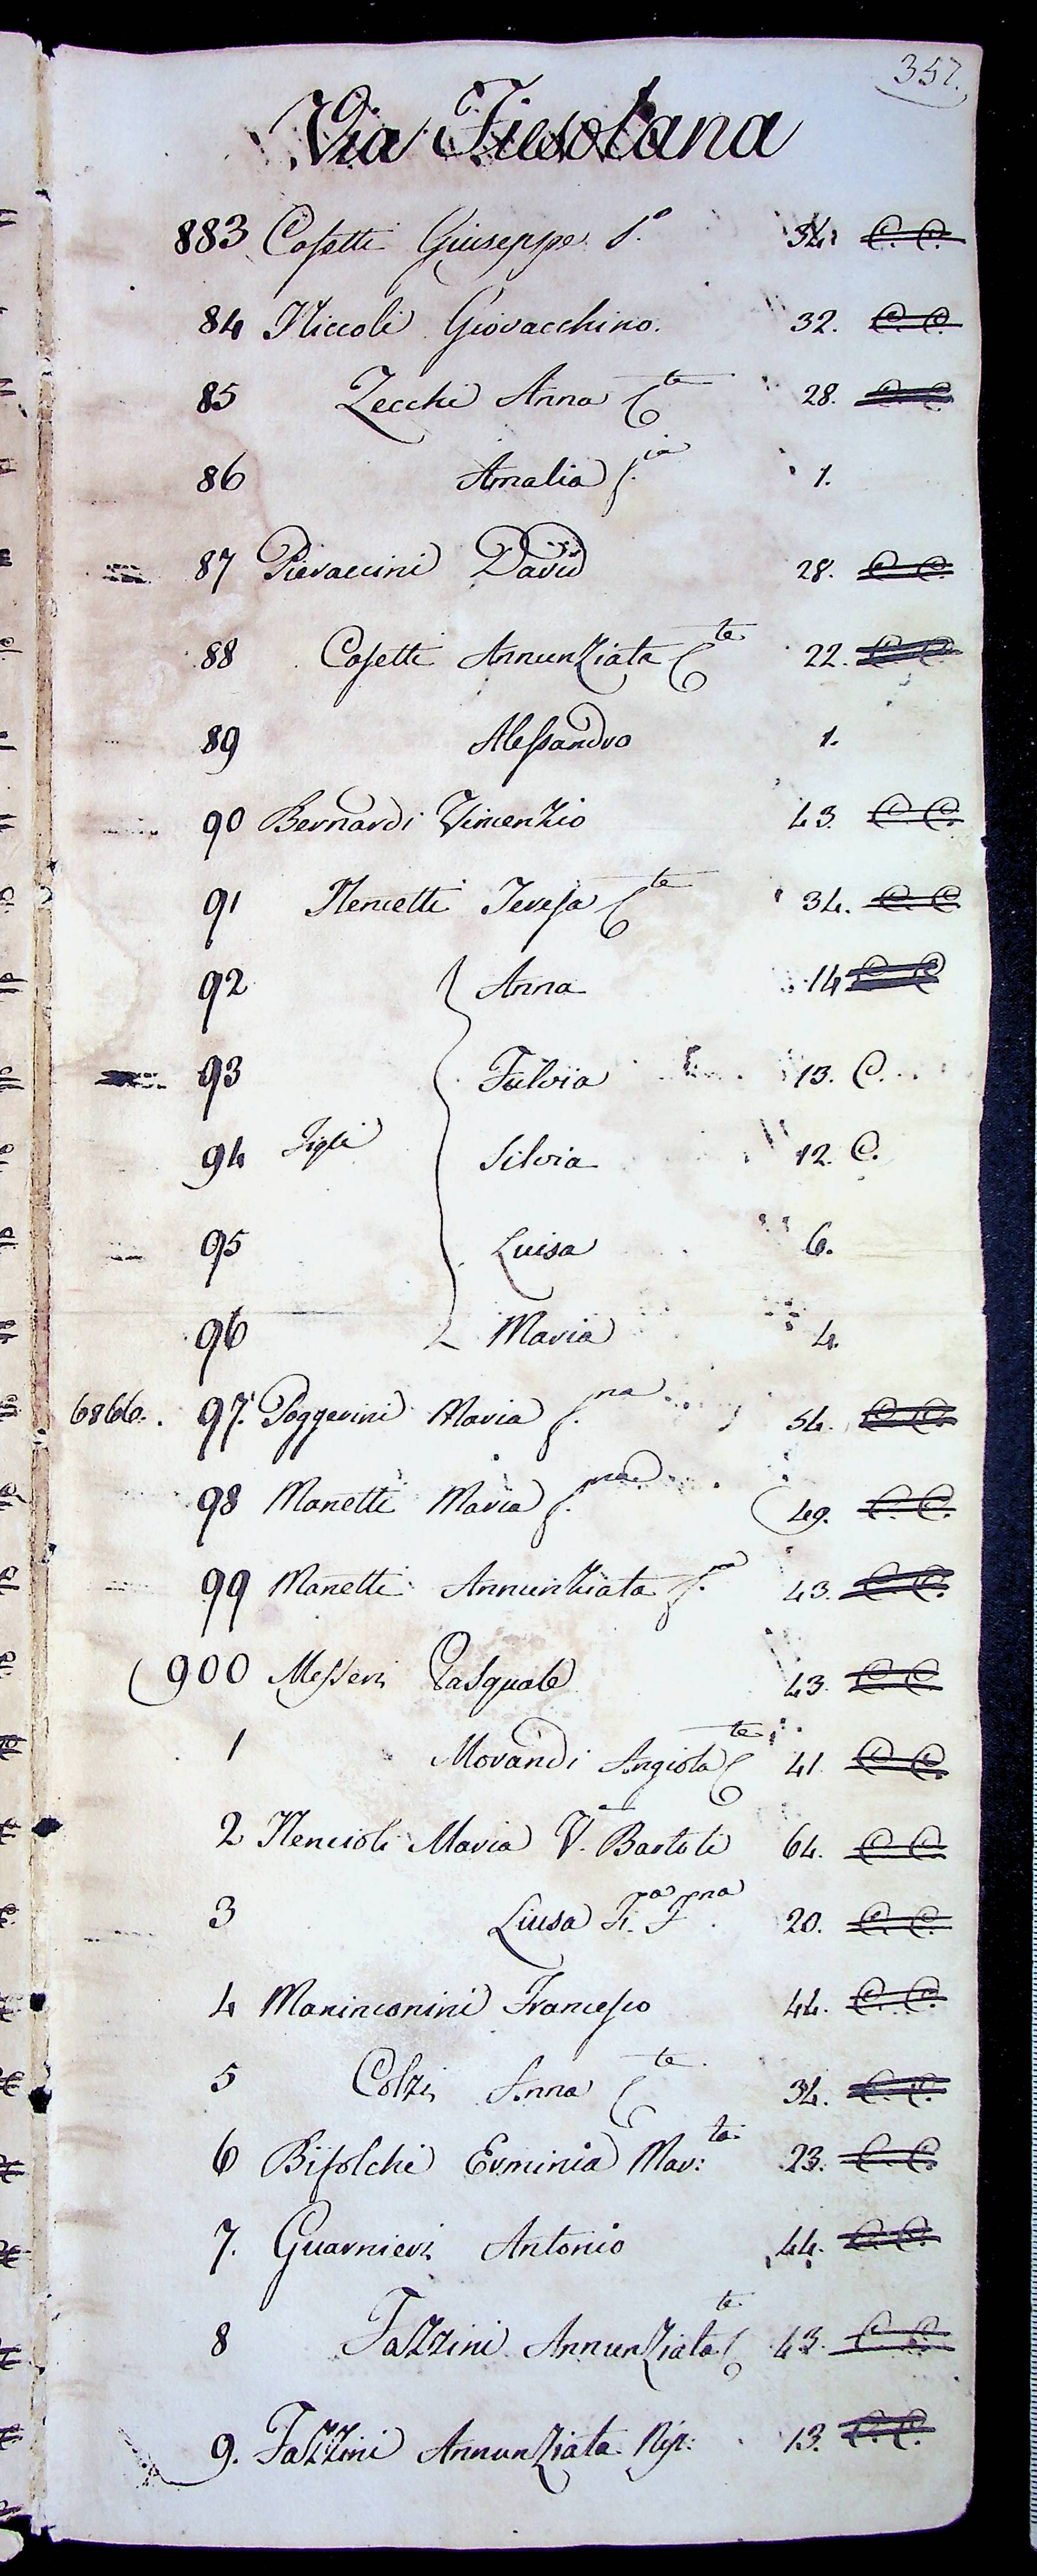 357.
Via Fiesolana
883 Casetti Giuseppe S.o 34. C. C.
84 Niccoli Giovacchino. 32. C. C.
85 Zecchi Anna Cte 28. C. C.
86 Amalia f.ia 1.
87 Pieraccini David 28. C. C.
88 Casetti Annunziata Cte 22. C. C.
89 Alessandro 1.
90 Bernardi Vincenzio 43. C. C.
91 Nencetti Teresa Cte 34. C. C.
92 Anna 14 C. C.
93 Fulvia 13. C.
94 Figli Silvia 12. C.
95 Luisa 6.
96 Maria 4.
6866. 97. Poggerini Maria f.na 54. C. C.
98 Manetti Maria f.na 49. C. C.
99 Manetti Annunziata f.na 43. C. C.
900 Messeri Pasquale 43. C. C.
1 Morandi Angiola Cte 41. C. C.
2 Nencioli Maria V.a Bartoli 64. C. C.
3 Luisa Fi.a F.na 20. C. C.
4 Maninconini Francesco 44. C. C.
5 Colzi Anna Cte 34. C. C.
6 Bifolchi Erminia Mar:ta 23. C. C.
7. Guarnieri Antonio 44. C. C.
8 Fazzini Annunziata Cte 43. C. C.
9. Fazzini Annunziata Nip: 13. C. C.